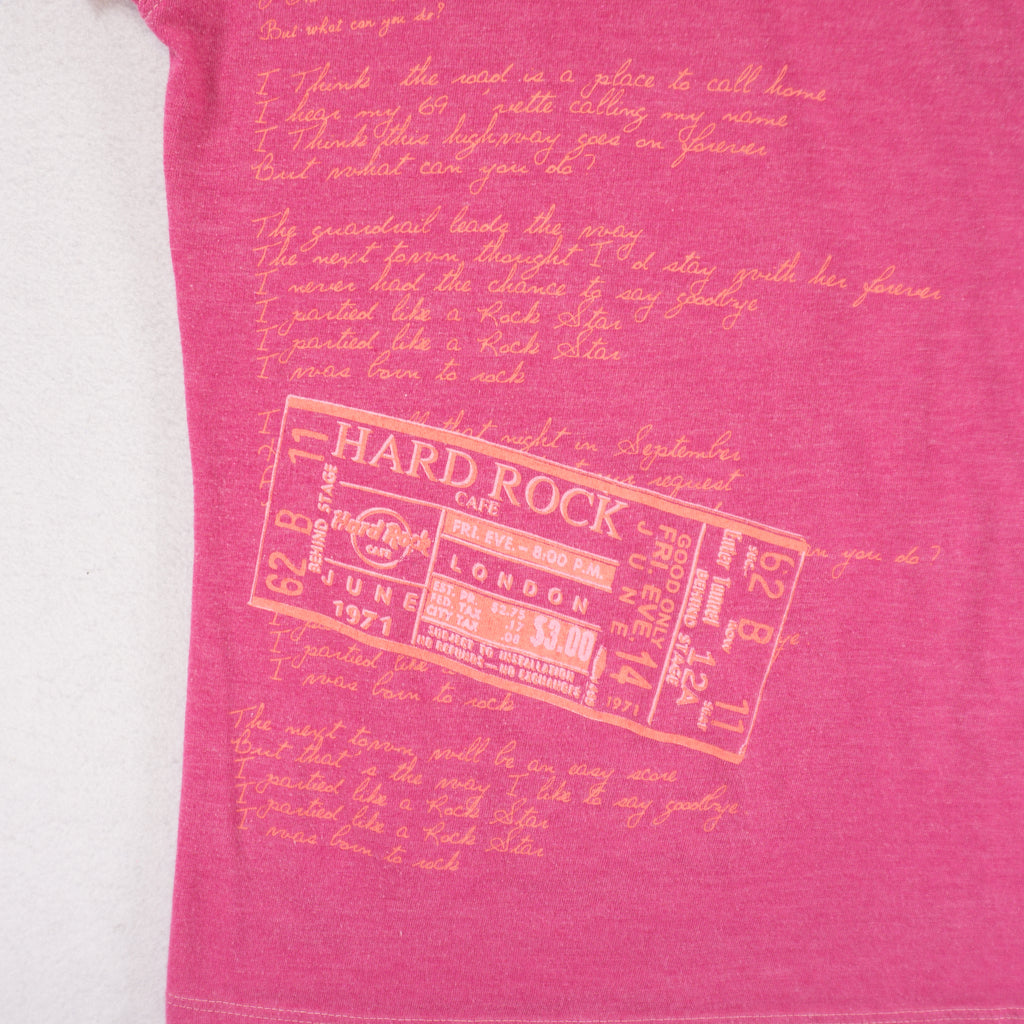 But what can you do?
I Think the road is a place to call home
I hear my 69 'vette calling my name
I Think this highway goes on forever
But what can you do?
The guardrail leads the way
The next town thought I'd stay with her forever
I never had the chance to say goodbye
I partied like a Rock Star
I partied like a Rock Star
I was born to rock
I that night in September
request
you do?
HARD ROCK
CAFE
62 B 11
BEHIND STAGE
Hard Rock
CAFE
JUNE
1971
FRI. EVE. - 8:00 P.M.
LONDON
EST. PR. $2.75
FED. TAX .17
CITY TAX .08
$3.00
SUBJECT TO INSTALLATION
NO REFUNDS—NO EXCHANGES
GOOD ONLY
FRI EVE 14
JUNE
1971
Enter Tunnel 12A
BEHIND STAGE
SEC. ROW SEAT
62 B 11
I partied like
I was born to rock
The next town will be an easy score
But that's the way I like to say goodbye
I partied like a Rock Star
I partied like a Rock Star
I was born to rock